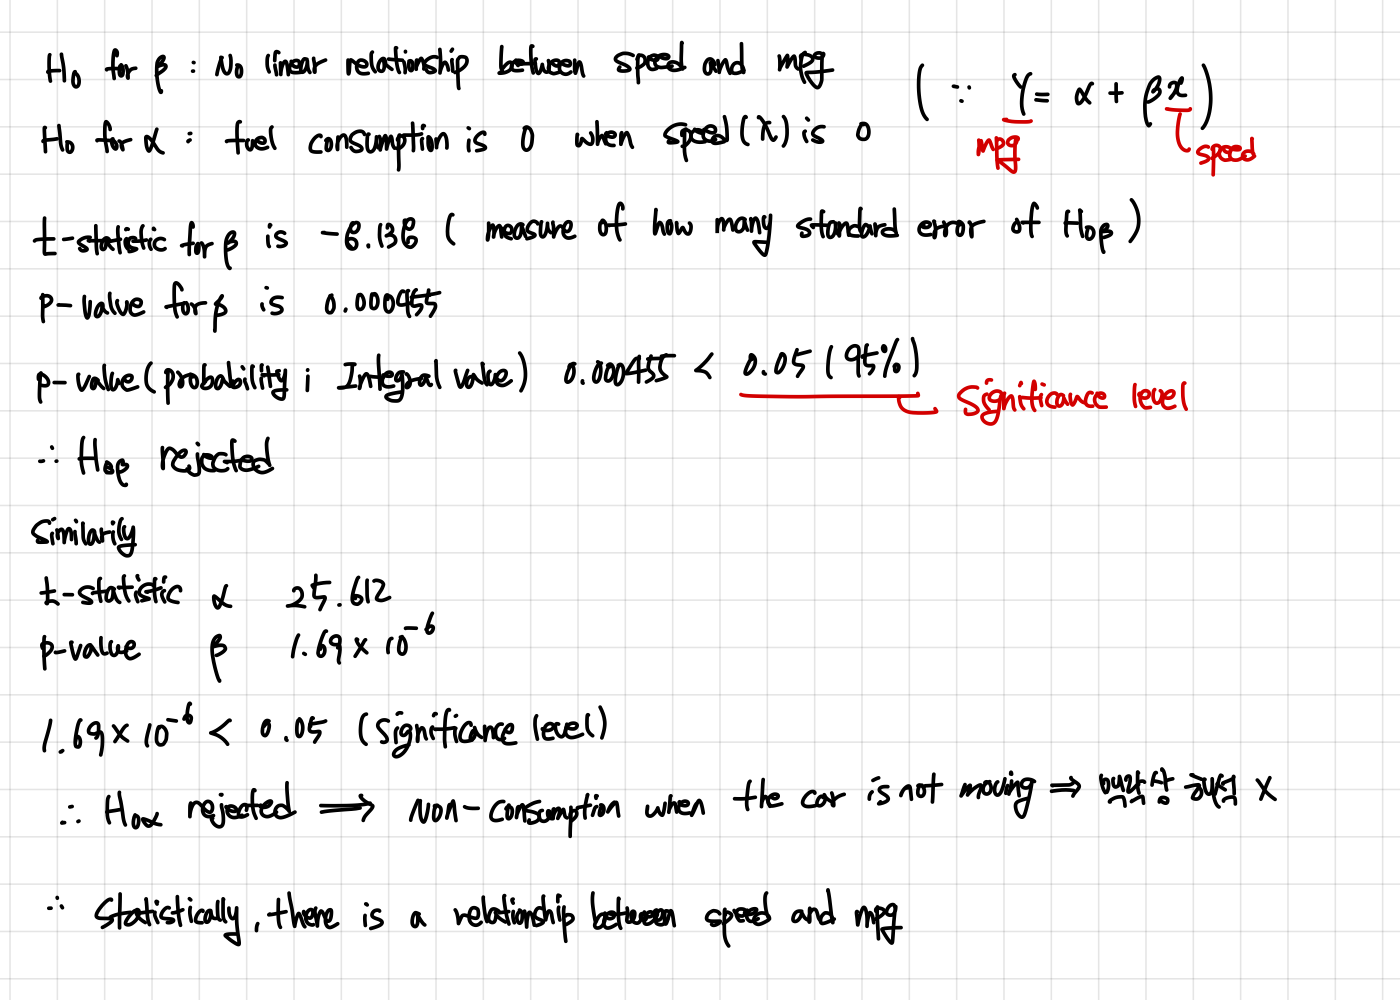 H₀ for β : No linear relationship between speed and mpg
( ∵ Y = α + βx )
mpg
speed
H₀ for α : fuel consumption is 0 when speed(x) is 0
t-statistic for β is -8.138 ( measure of how many standard error of H₀β )
p-value for β is 0.000455
p-value(probability ; Integral value) 0.000455 < 0.05 (95%)
Significance level
∴ H₀β rejected
Similarily
t-statistic α 25.612
p-value β 1.69 × 10⁻⁶
1.69 × 10⁻⁶ < 0.05 (Significance level)
∴ H₀α rejected ⟹ Non-consumption when the car is not moving ⇒ X
∴ Statistically, there is a relationship between speed and mpg